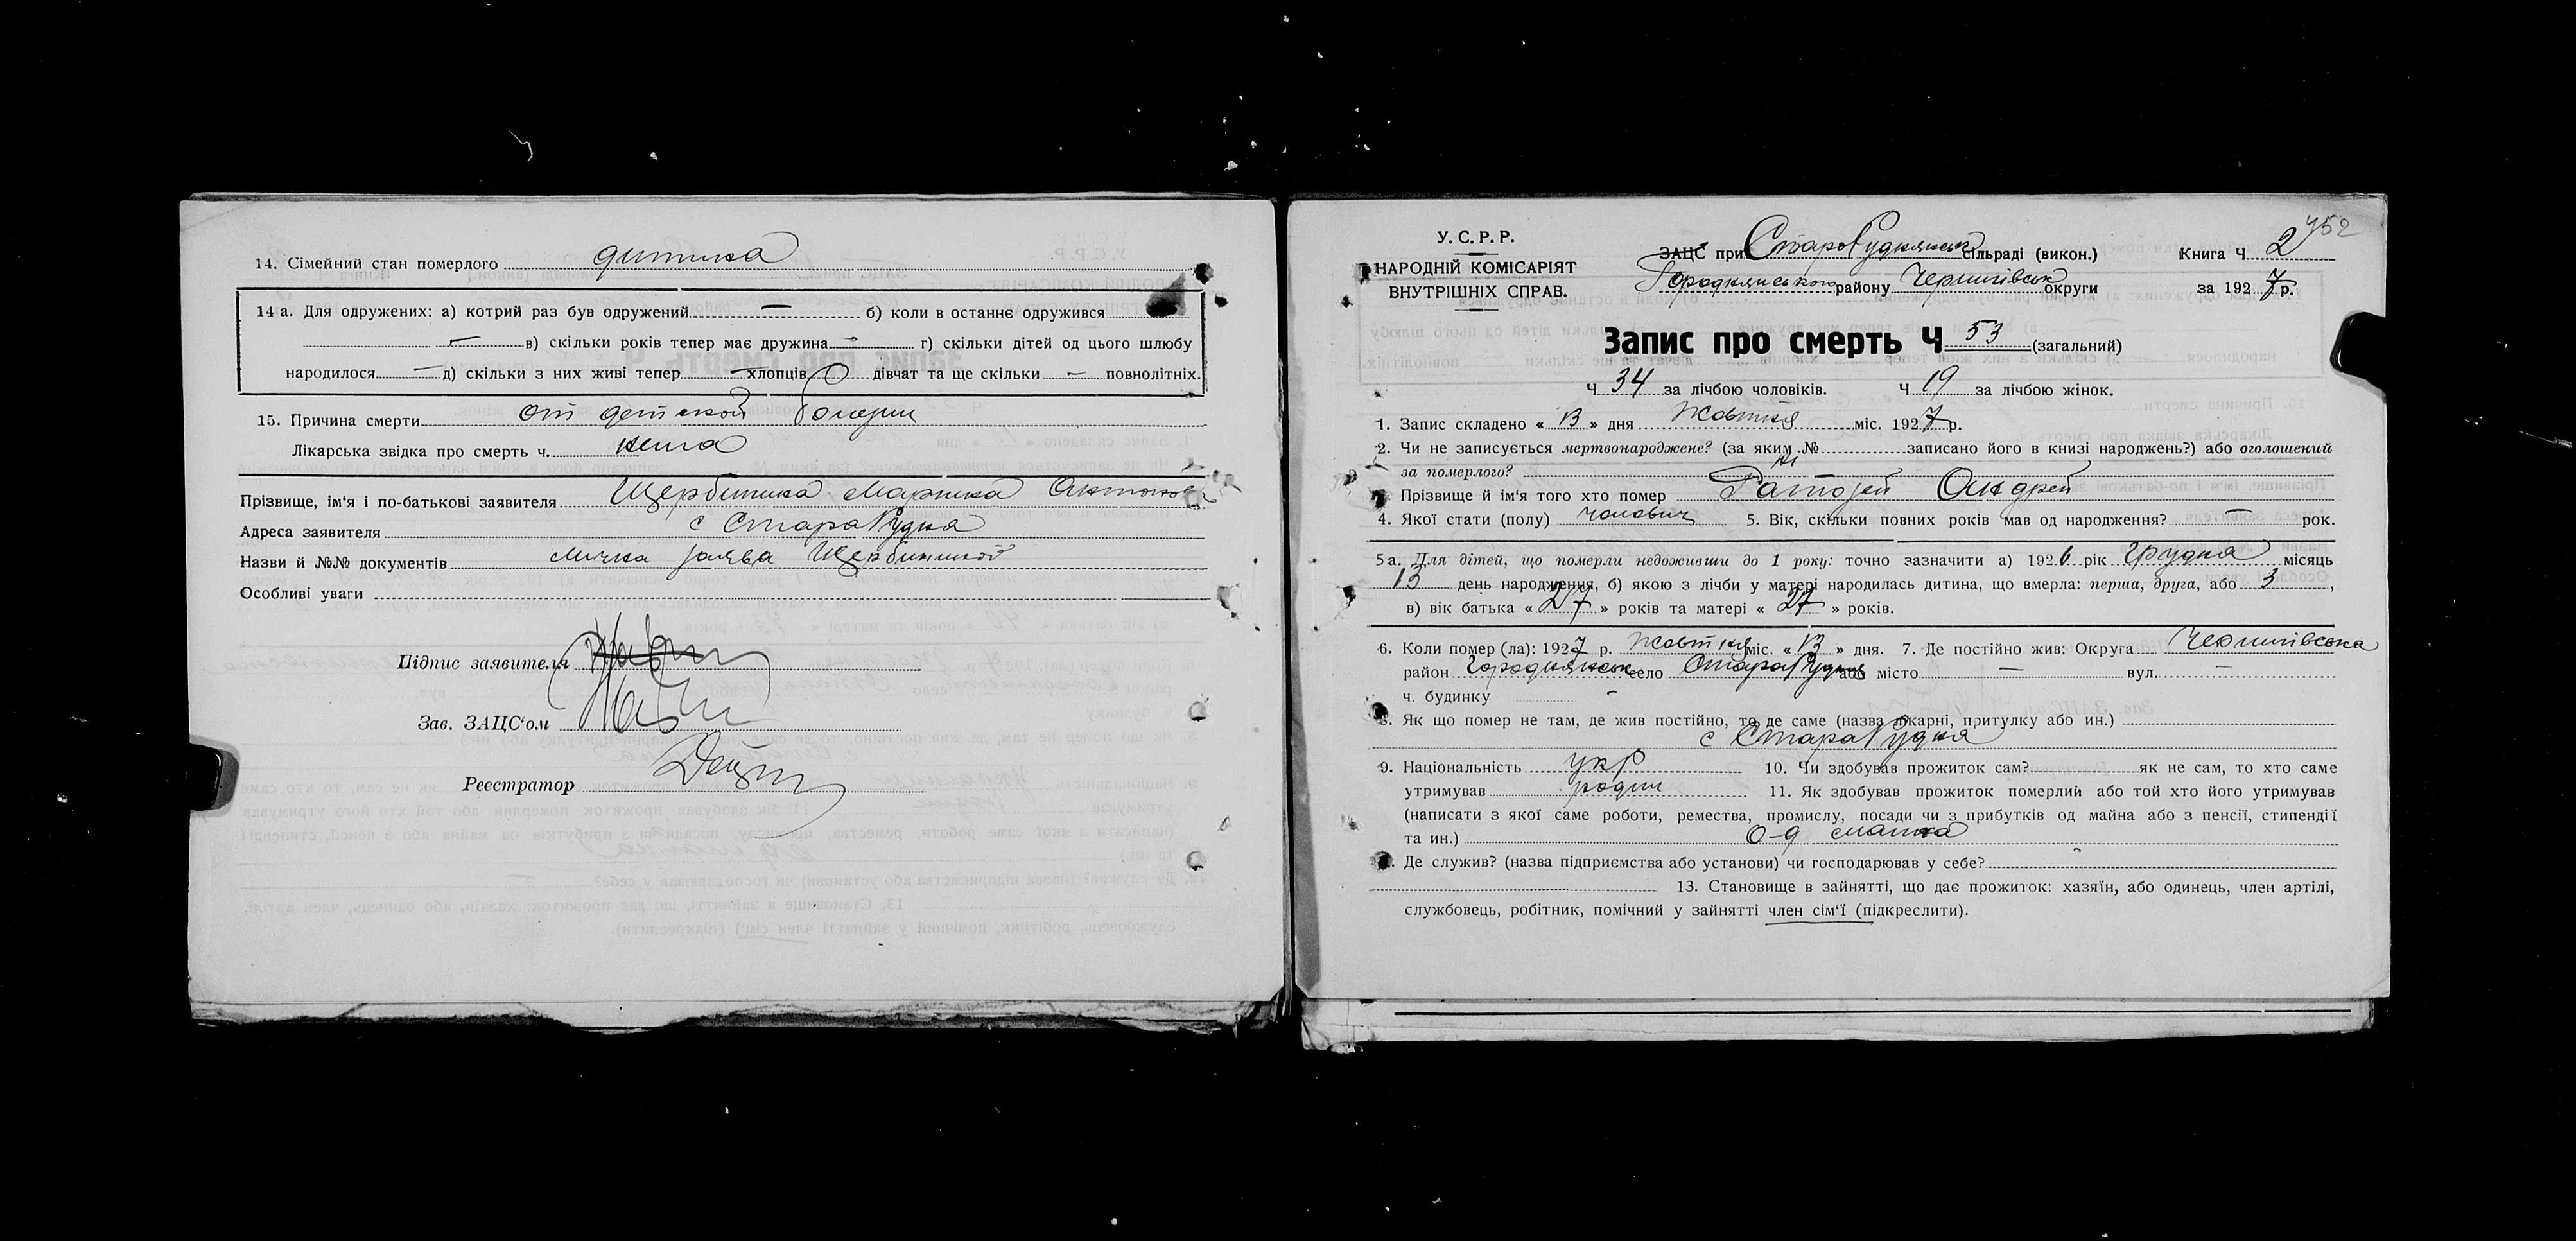 14. Сімейний стан померлого дитина
14 а. Для одружених: а) котрий раз був одружений — б) коли в останнє одружився
— в) скільки років тепер має дружина — г) скільки дітей од цього шлюбу
народилося — д) скільки з них живі тепер — хлопців 0 дівчат та ще скільки — повнолітніх.
15. Причина смерти от детской болезни
Лікарська звідка про смерть ч. нема
Прізвище, ім'я і по-батькові заявителя Щербинина Антонов
Адреса заявителя с Стара Рудня
Назви й №№ документів лична заява
Особливі уваги
Підпис заявителя
Зав. ЗАЦС'ом
Реєстратор
У. С. Р. Р.
НАРОДНІЙ КОМІСАРІЯТ
ВНУТРІШНІХ СПРАВ.
452
ЗАЦС при СтароРуднянськ сільраді (викон.) Книга Ч 2
Городнянського району Чернигівськ округи за 1927 р.
Запис про смерть Ч 53 (загальний)
Ч 34 за лічбою чоловіків. Ч 19 за лічбою жінок.
1. Запис складено « 13 » дня Жовтня міс. 1927 р.
2. Чи не записується мертвонароджене? (за яким № записано його в книзі народжень?) або оголошений
за померлого?
3. Прізвище й ім'я того хто помер Андрей
4. Якої стати (полу) чолович 5. Вік, скільки повних років мав од народження? — рок.
5 а. Для дітей, що померли недоживши до 1 року: точно зазначити а) 1926 рік грудня місяць
13 день народження, б) якою з лічби у матері народилась дитина, що вмерла: перша, друга, або 3,
в) вік батька « 27 » років та матері « 27 » років.
6. Коли помер (ла): 1927 р. Жовтня міс. « 13 » дня. 7. Де постійно жив: Округа Чернигівська
район городнянськ село Стара Рудня або місто — вул. —
ч. будинку -
8. Як що помер не там, де жив постійно, то де саме (назва лікарні, притулку або ин.)
с Стара Рудня
9. Національність укр 10. Чи здобував прожиток сам? як не сам, то хто саме
утримував родич 11. Як здобував прожиток померлий або той хто його утримував
(написати з якої саме роботи, ремества, промислу, посади чи з прибутків од майна або з пенсії, стипендії
та ин.)
12. Де служив? (назва підприємства або установи) чи господарював у себе?
13. Становище в зайнятті, що дає прожиток: хазяїн, або одинець, член артілі,
службовець, робітник, помічний у зайнятті член сім'ї (підкреслити).